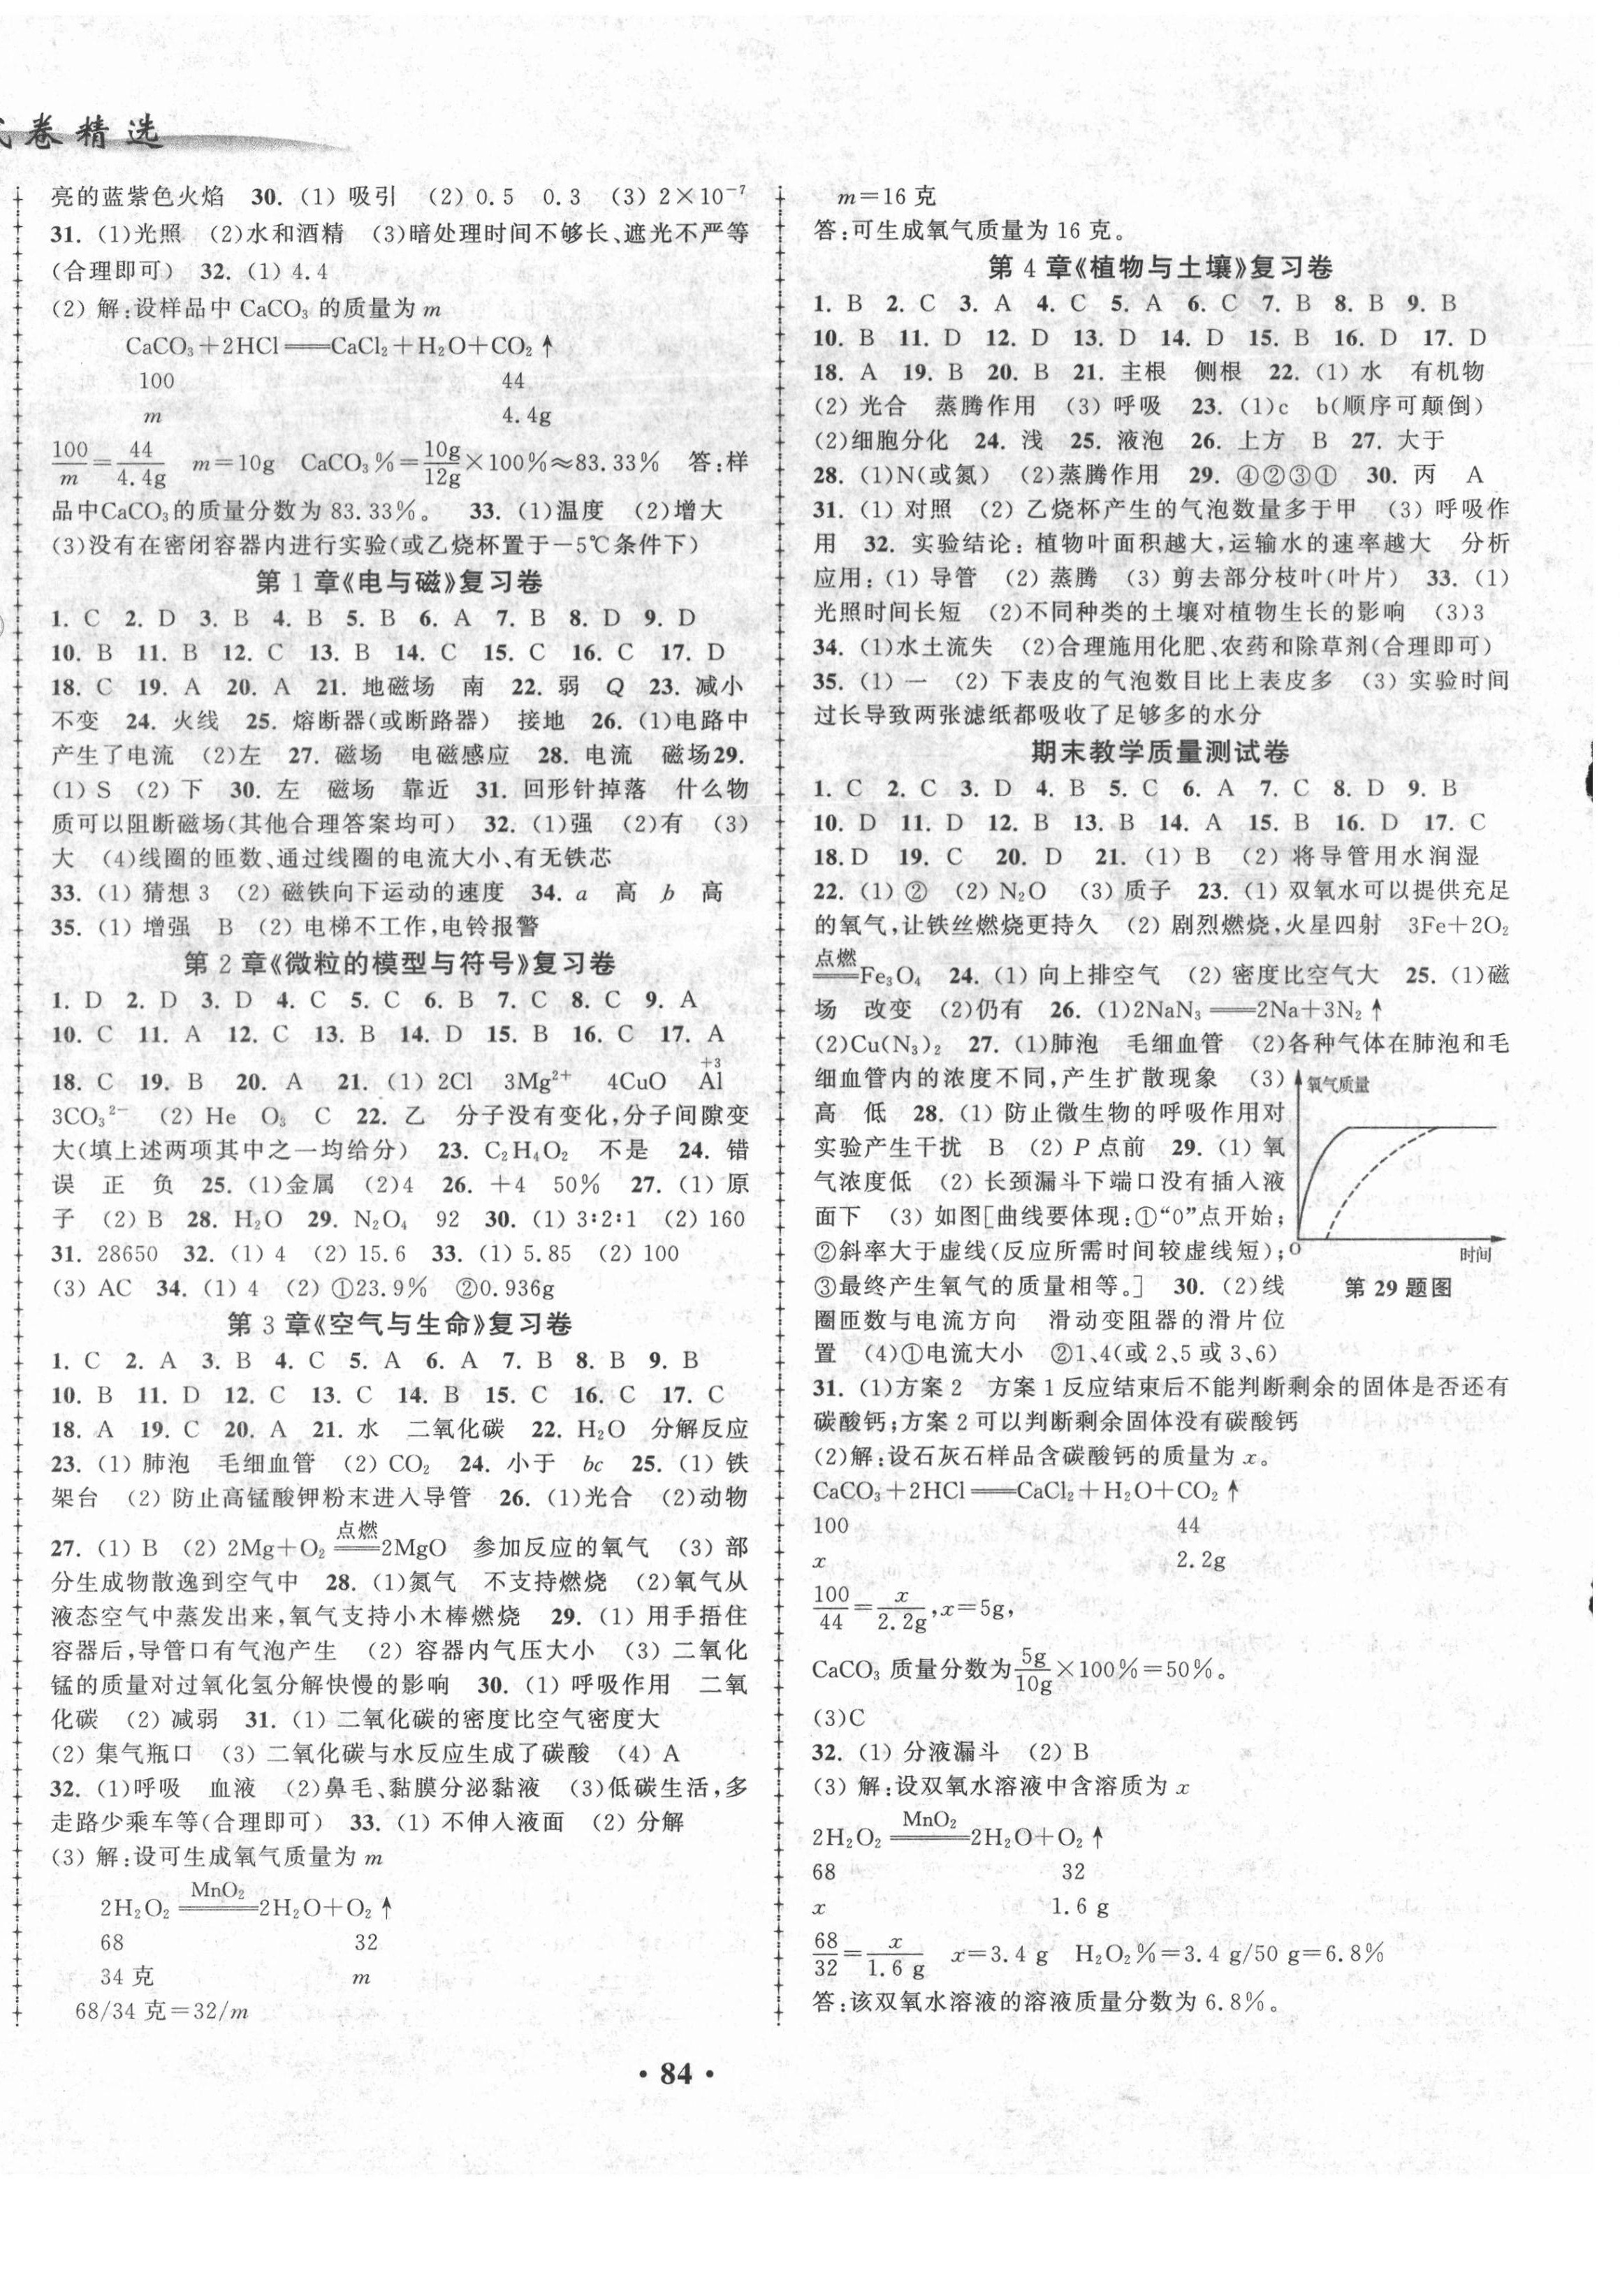 卷精选
亮的蓝紫色火焰 30. (1) 吸引 (2) 0.5 0.3 (3) 2×10⁻⁷
31. (1)光照 (2)水和酒精 (3)暗处理时间不够长、遮光不严等
(合理即可) 32. (1) 4.4
(2) 解:设样品中 CaCO₃ 的质量为 m
CaCO₃+2HCl══CaCl₂+H₂O+CO₂↑
100 44
m 4.4g
100/m=44/4.4g m=10g CaCO₃%=10g/12g×100%≈83.33% 答:样
品中CaCO₃的质量分数为 83.33%。 33. (1)温度 (2)增大
(3)没有在密闭容器内进行实验(或乙烧杯置于-5℃条件下)
第 1 章《电与磁》复习卷
1. C 2. D 3. B 4. B 5. B 6. A 7. B 8. D 9. D
10. B 11. B 12. C 13. B 14. C 15. C 16. C 17. D
18. C 19. A 20. A 21. 地磁场 南 22. 弱 Q 23. 减小
不变 24. 火线 25. 熔断器(或断路器) 接地 26. (1)电路中
产生了电流 (2)左 27. 磁场 电磁感应 28. 电流 磁场29.
(1) S (2) 下 30. 左 磁场 靠近 31. 回形针掉落 什么物
质可以阻断磁场(其他合理答案均可) 32. (1)强 (2)有 (3)
大 (4)线圈的匝数、通过线圈的电流大小、有无铁芯
33. (1) 猜想 3 (2) 磁铁向下运动的速度 34. a 高 b 高
35. (1) 增强 B (2) 电梯不工作,电铃报警
第 2 章《微粒的模型与符号》复习卷
1. D 2. D 3. D 4. C 5. C 6. B 7. C 8. C 9. A
10. C 11. A 12. C 13. B 14. D 15. B 16. C 17. A
18. C 19. B 20. A 21. (1) 2Cl 3Mg²⁺ 4CuO +3Al
3CO₃²⁻ (2) He O₃ C 22. 乙 分子没有变化,分子间隙变
大(填上述两项其中之一均给分) 23. C₂H₄O₂ 不是 24. 错
误 正 负 25. (1)金属 (2)4 26. +4 50% 27. (1) 原
子 (2) B 28. H₂O 29. N₂O₄ 92 30. (1) 3∶2∶1 (2) 160
31. 28650 32. (1) 4 (2) 15.6 33. (1) 5.85 (2) 100
(3) AC 34. (1) 4 (2) ①23.9% ②0.936g
第 3 章《空气与生命》复习卷
1. C 2. A 3. B 4. C 5. A 6. A 7. B 8. B 9. B
10. B 11. D 12. C 13. C 14. B 15. C 16. C 17. C
18. A 19. C 20. A 21. 水 二氧化碳 22. H₂O 分解反应
23. (1) 肺泡 毛细血管 (2) CO₂ 24. 小于 bc 25. (1) 铁
架台 (2) 防止高锰酸钾粉末进入导管 26. (1)光合 (2)动物
27. (1) B (2) 2Mg+O₂ 点燃══2MgO 参加反应的氧气 (3) 部
分生成物散逸到空气中 28. (1)氮气 不支持燃烧 (2)氧气从
液态空气中蒸发出来,氧气支持小木棒燃烧 29. (1) 用手捂住
容器后,导管口有气泡产生 (2) 容器内气压大小 (3) 二氧化
锰的质量对过氧化氢分解快慢的影响 30. (1) 呼吸作用 二氧
化碳 (2) 减弱 31. (1) 二氧化碳的密度比空气密度大
(2) 集气瓶口 (3) 二氧化碳与水反应生成了碳酸 (4) A
32. (1)呼吸 血液 (2)鼻毛、黏膜分泌黏液 (3)低碳生活,多
走路少乘车等(合理即可) 33. (1) 不伸入液面 (2) 分解
(3) 解:设可生成氧气质量为 m
2H₂O₂ MnO₂══2H₂O+O₂↑
68 32
34 克 m
68/34 克=32/m
m=16 克
答:可生成氧气质量为 16 克。
第 4 章《植物与土壤》复习卷
1. B 2. C 3. A 4. C 5. A 6. C 7. B 8. B 9. B
10. B 11. D 12. D 13. D 14. D 15. B 16. D 17. D
18. A 19. B 20. B 21. 主根 侧根 22. (1) 水 有机物
(2) 光合 蒸腾作用 (3) 呼吸 23. (1)c b(顺序可颠倒)
(2)细胞分化 24. 浅 25. 液泡 26. 上方 B 27. 大于
28. (1)N(或氮) (2)蒸腾作用 29. ④②③① 30. 丙 A
31. (1) 对照 (2) 乙烧杯产生的气泡数量多于甲 (3) 呼吸作
用 32. 实验结论: 植物叶面积越大,运输水的速率越大 分析
应用: (1) 导管 (2) 蒸腾 (3) 剪去部分枝叶(叶片) 33. (1)
光照时间长短 (2)不同种类的土壤对植物生长的影响 (3)3
34. (1)水土流失 (2)合理施用化肥、农药和除草剂(合理即可)
35. (1) 一 (2) 下表皮的气泡数目比上表皮多 (3) 实验时间
过长导致两张滤纸都吸收了足够多的水分
期末教学质量测试卷
1. C 2. C 3. D 4. B 5. C 6. A 7. C 8. D 9. B
10. D 11. D 12. B 13. B 14. A 15. B 16. D 17. C
18. D 19. C 20. D 21. (1) B (2) 将导管用水润湿
22. (1) ② (2) N₂O (3) 质子 23. (1) 双氧水可以提供充足
的氧气,让铁丝燃烧更持久 (2) 剧烈燃烧,火星四射 3Fe+2O₂
点燃══Fe₃O₄ 24. (1) 向上排空气 (2) 密度比空气大 25. (1)磁
场 改变 (2)仍有 26. (1)2NaN₃══2Na+3N₂↑
(2)Cu(N₃)₂ 27. (1)肺泡 毛细血管 (2)各种气体在肺泡和毛
细血管内的浓度不同,产生扩散现象 (3)
高 低 28. (1) 防止微生物的呼吸作用对
实验产生干扰 B (2) P 点前 29. (1) 氧
气浓度低 (2) 长颈漏斗下端口没有插入液
面下 (3) 如图[曲线要体现:①“0”点开始;
②斜率大于虚线(反应所需时间较虚线短);
③最终产生氧气的质量相等。] 30. (2)线
圈匝数与电流方向 滑动变阻器的滑片位
置 (4)①电流大小 ②1、4(或 2、5 或 3、6)
氧气质量
O
时间
第 29 题图
31. (1)方案 2 方案 1 反应结束后不能判断剩余的固体是否还有
碳酸钙;方案 2 可以判断剩余固体没有碳酸钙
(2)解:设石灰石样品含碳酸钙的质量为 x。
CaCO₃+2HCl══CaCl₂+H₂O+CO₂↑
100 44
x 2.2g
100/44=x/2.2g,x=5g,
CaCO₃ 质量分数为5g/10g×100%=50%。
(3)C
32. (1) 分液漏斗 (2) B
(3) 解:设双氧水溶液中含溶质为 x
2H₂O₂ MnO₂══2H₂O+O₂↑
68 32
x 1.6 g
68/32=x/1.6 g x=3.4 g H₂O₂%=3.4 g/50 g=6.8%
答:该双氧水溶液的溶液质量分数为 6.8%。
· 84 ·